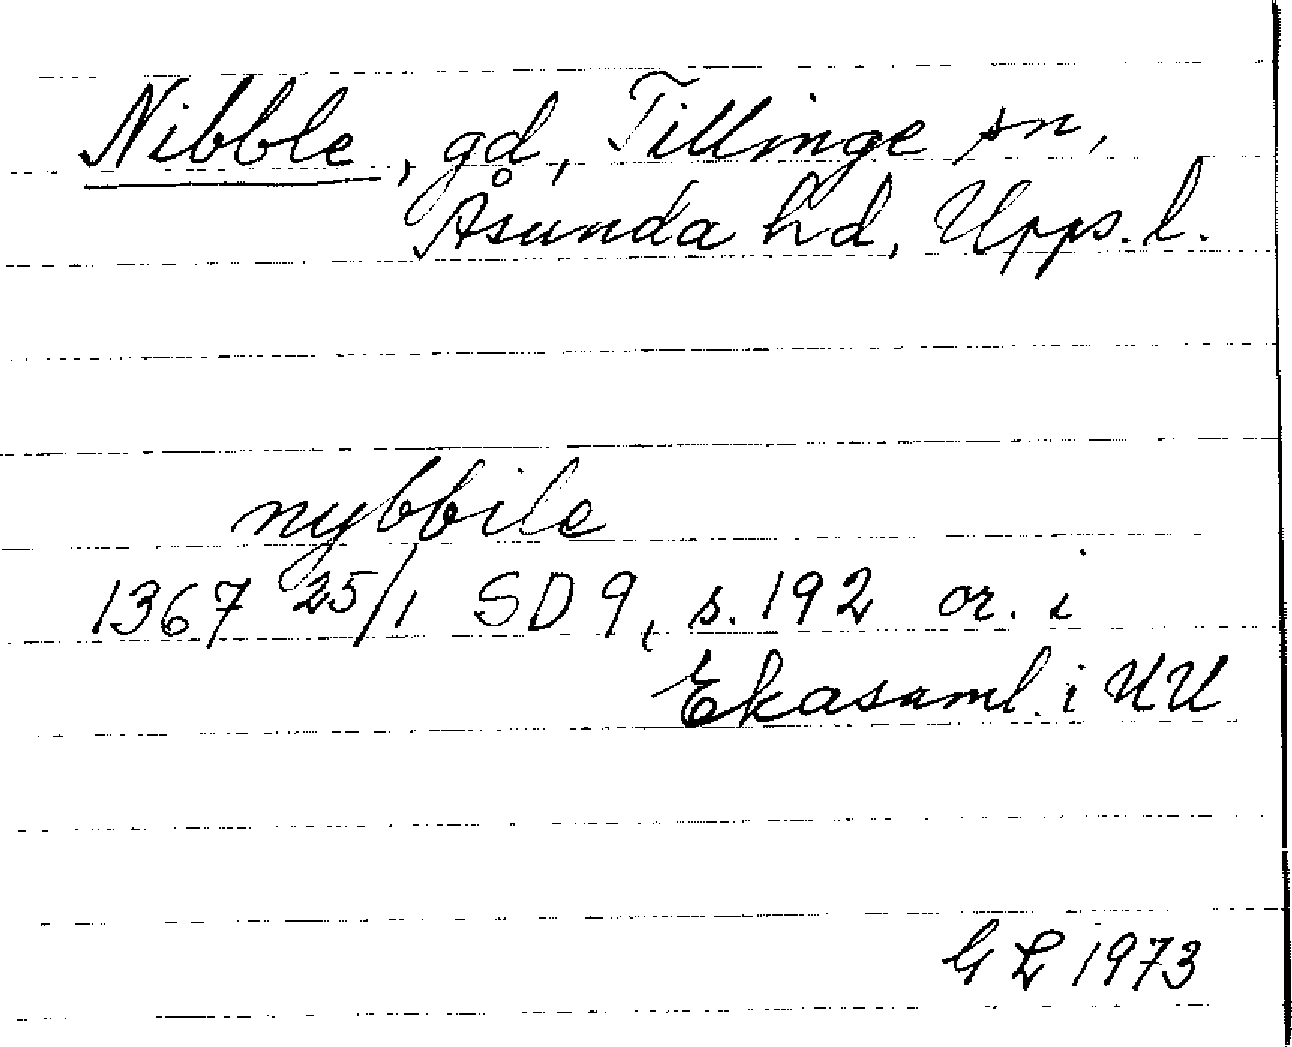 Nibble, gd, Tillinge sn,
Åsunda hd, Upps. l.
nybbile
1367 25/1 SD 9, s. 192 or. i
Ekasaml. i UU
GL 1973